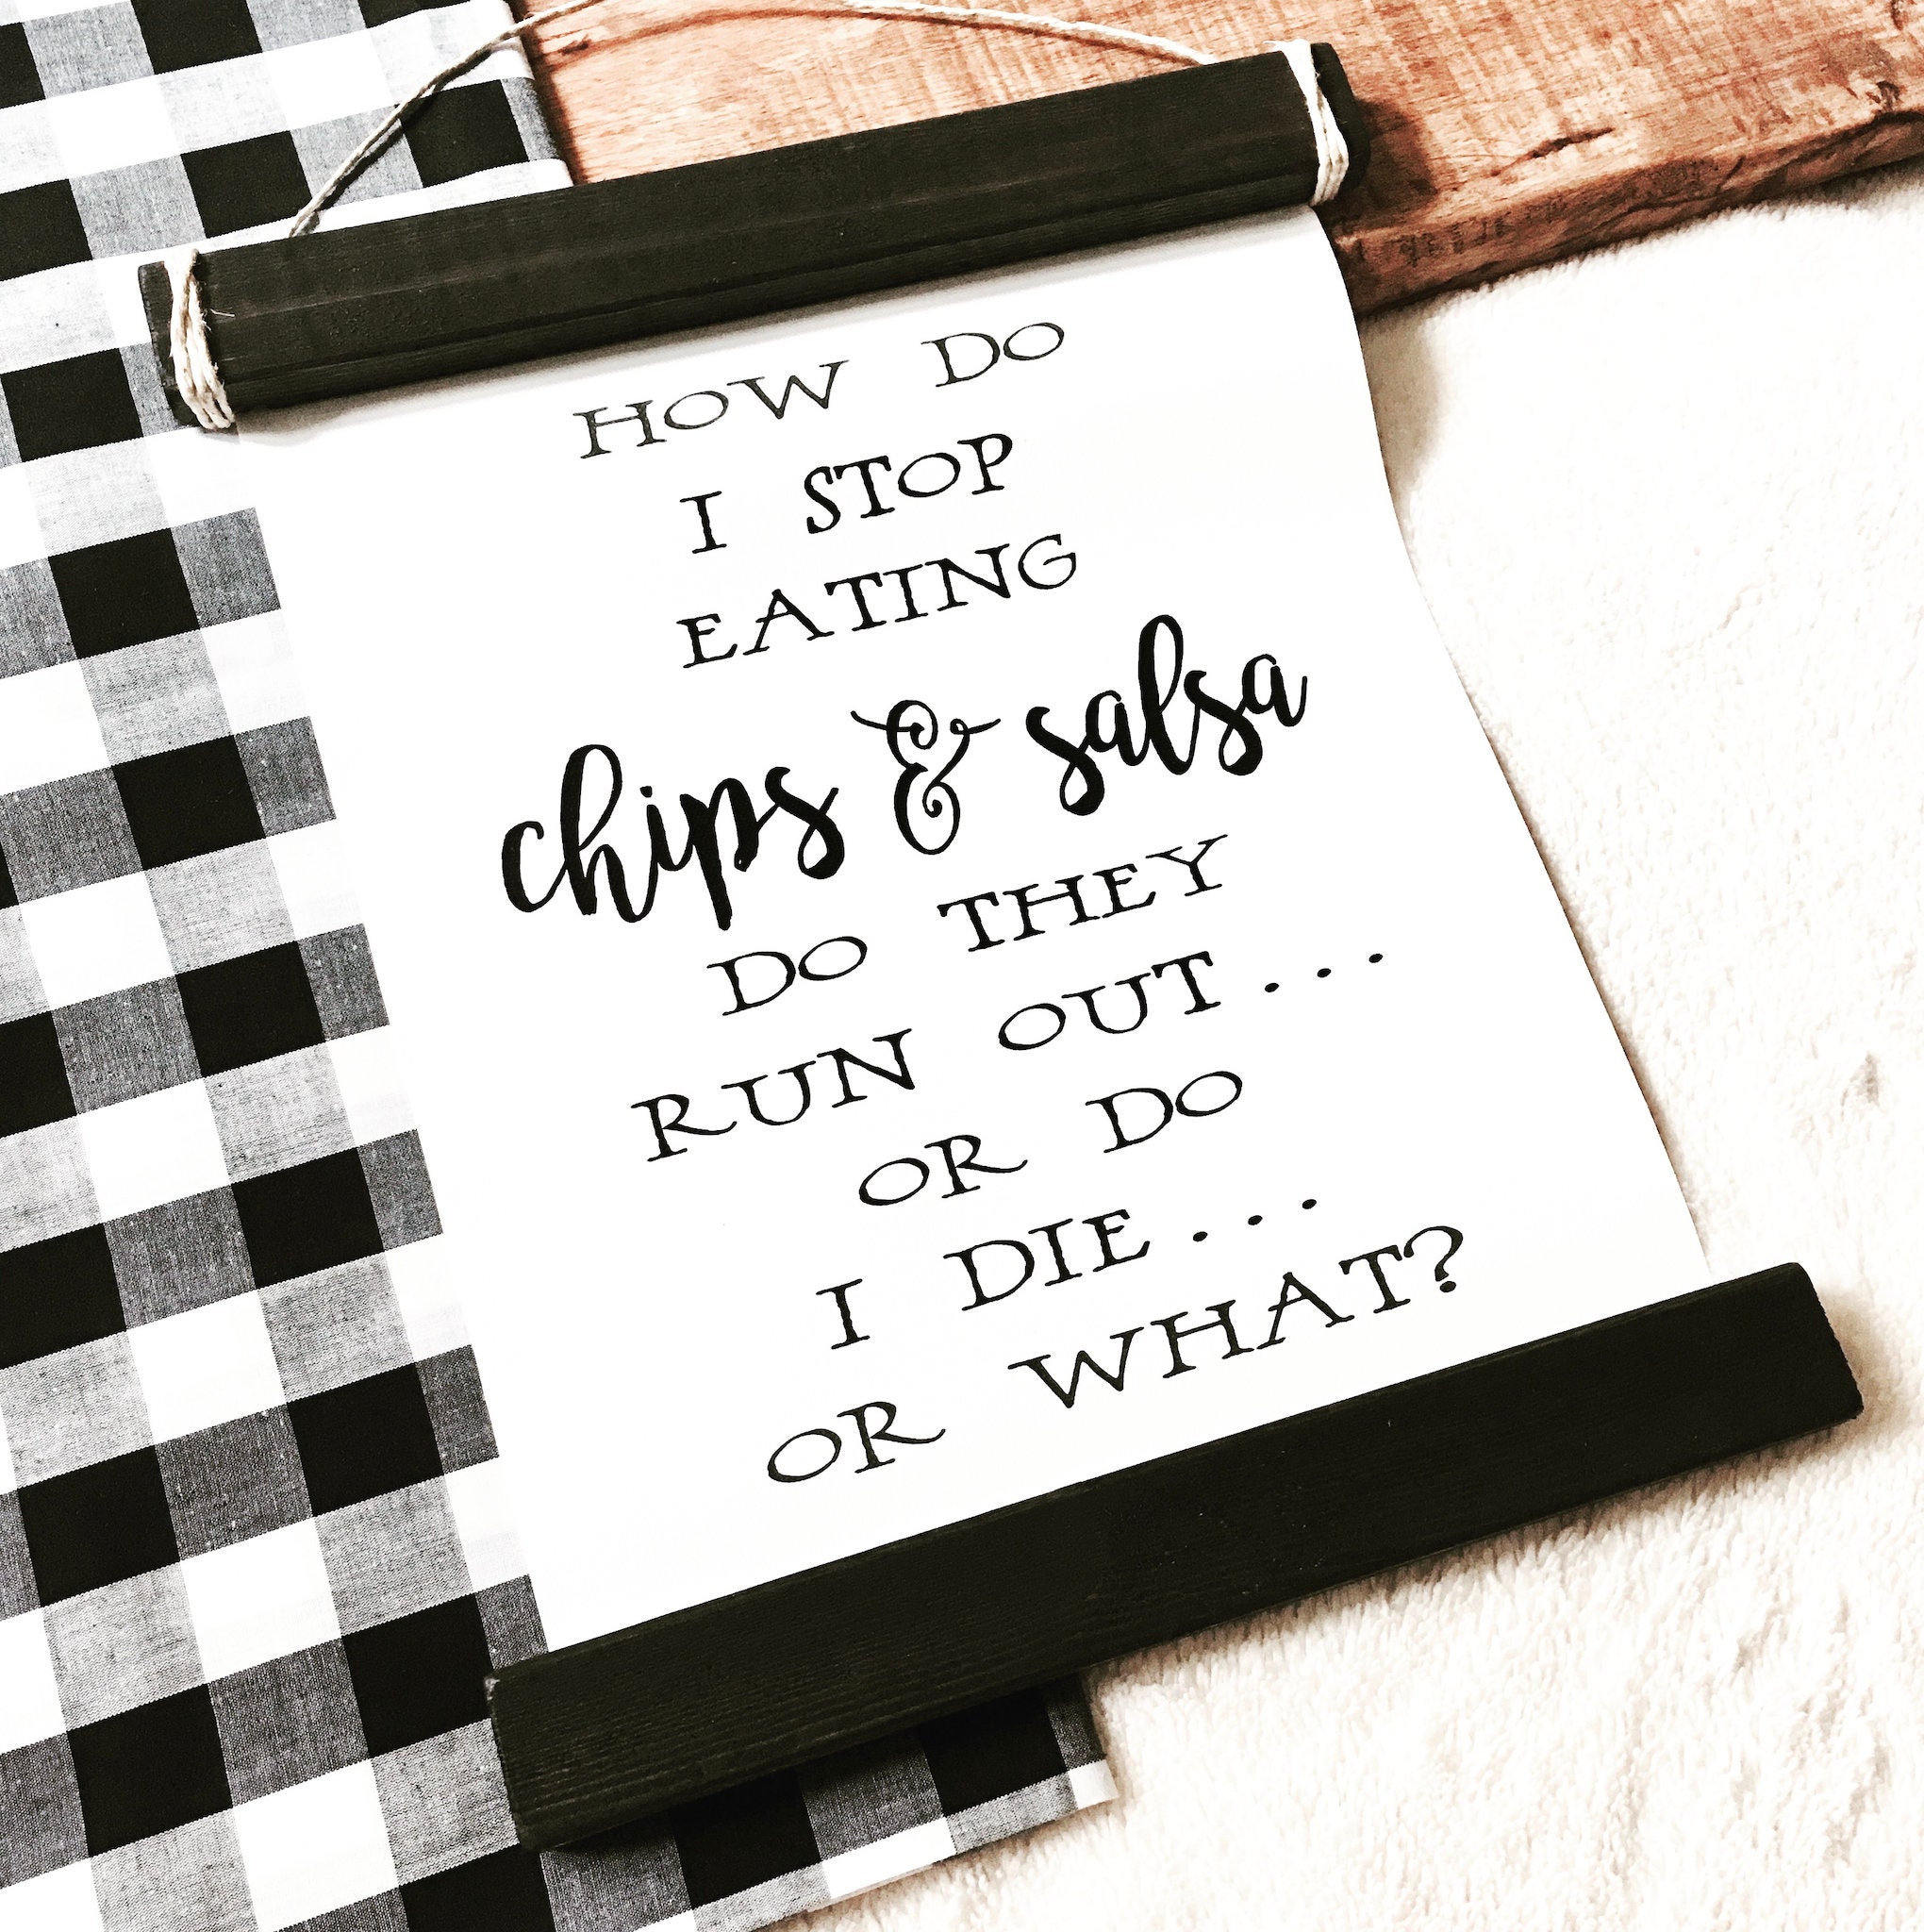 HOW DO
I STOP
EATING
chips & salsa
DO THEY
RUN OUT...
OR DO
I DIE...
OR WHAT?